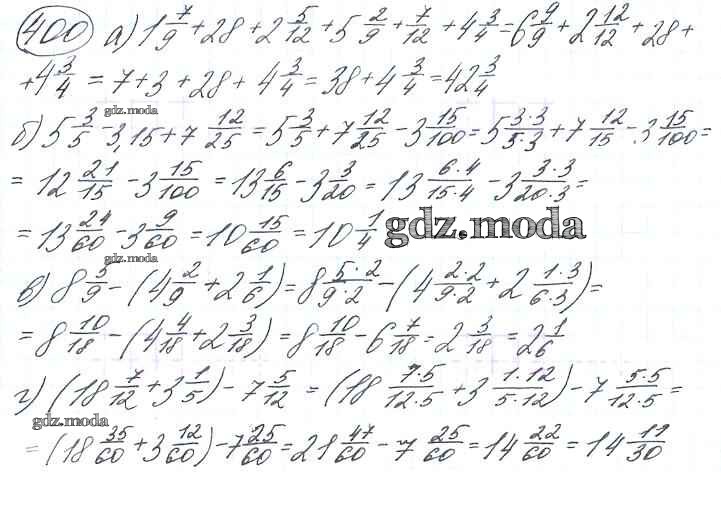 400 а) 1 7/9 + 28 + 2 5/12 + 5 2/9 + 7/12 + 4 3/4 = 6 9/9 + 2 12/12 + 28 +
+ 4 3/4 = 7 + 3 + 28 + 4 3/4 = 38 + 4 3/4 = 42 3/4
gdz.moda
б) 5 3/5 - 3,15 + 7 12/25 = 5 3/5 + 7 12/25 - 3 15/100 = 5 3·3/5·3 + 7 12/15 - 3 15/100 =
= 12 21/15 - 3 15/100 = 13 6/15 - 3 3/20 = 13 6·4/15·4 - 3 3·3/20·3 =
= 13 24/60 - 3 9/60 = 10 15/60 = 10 1/4 gdz.moda
gdz.moda
в) 8 5/9 - (4 2/9 + 2 1/6) = 8 5·2/9·2 - (4 2·2/9·2 + 2 1·3/6·3) =
= 8 10/18 - (4 4/18 + 2 3/18) = 8 10/18 - 6 7/18 = 2 3/18 = 2 1/6
г) (18 7/12 + 3 1/5) - 7 5/12 = (18 7·5/12·5 + 3 1·12/5·12) - 7 5·5/12·5 =
gdz.moda
= (18 35/60 + 3 12/60) - 7 25/60 = 21 47/60 - 7 25/60 = 14 22/60 = 14 11/30